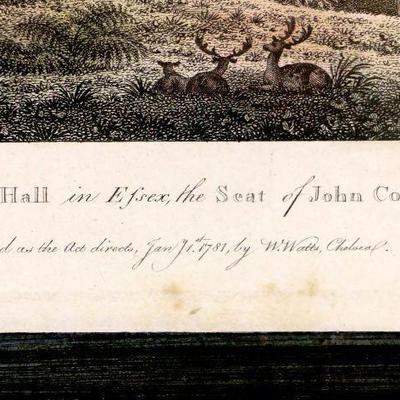 Hall in Eſsex, the Seat of John Co
d as the Act directs, Jan.y 1.st 1781, by W. Watts, Chelsea.